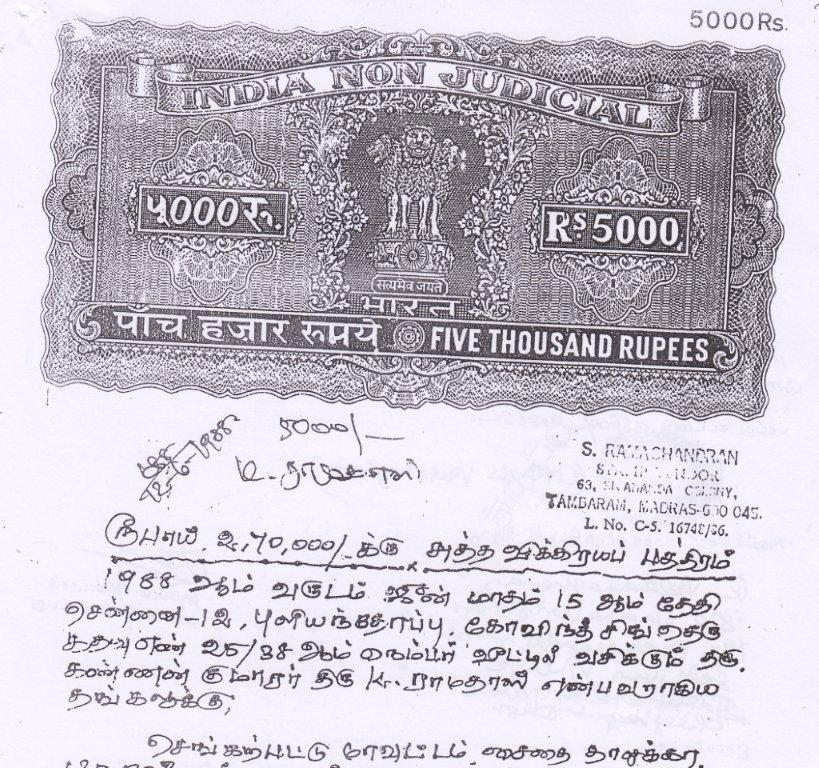 5000Rs.
INDIA NON JUDICIAL
५000रु.
Rs 5000
सत्यमेव जयते
भारत
पाँच हजार रुपये FIVE THOUSAND RUPEES
5000/-
1988
S. RAMACHANDRAN
STAMP VENDOR
63, COLONY,
TAMBARAM, MADRAS-600 045.
L. No. C-5. 16748/86.
ரூபாய் 2,70,000/-க்கு சுத்த விக்கிரயப் பத்திரம்
1988 ஆம் வருடம் ஜூன் மாதம் 15 ஆம் தேதி
சென்னை-12, புளியந்தோப்பு, கோவிந்த சிங் தெரு
கதவு எண் ஆம் நெம்பர் வீட்டில் வசிக்கும் திரு.
கண்ணன் குமாரர் திரு K. ராமதாஸ் என்பவராகிய
தங்களுக்கு,
செங்கற்பட்டு சைதை தாலுக்கா,